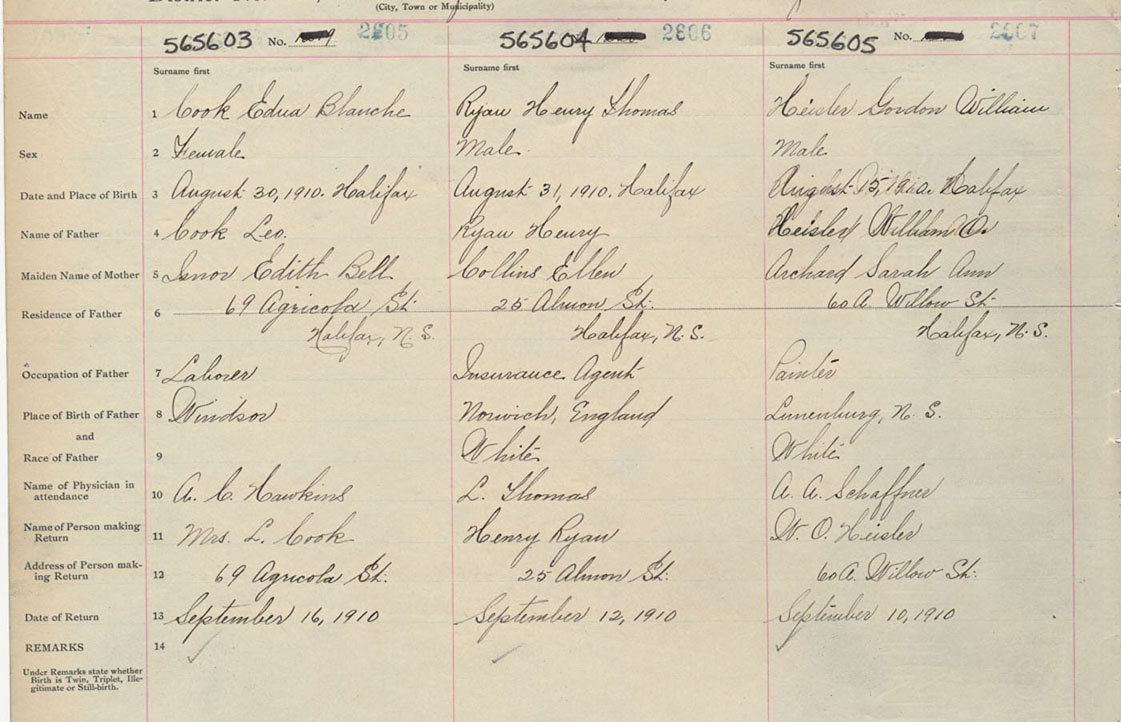 (City, Town or Municipality)
565603 No. 2805 565604 2806 565605 No. 2807
Surname first Surname first Surname first
Name 1 Cook Edna Blanche Ryan Henry Thomas Heisler Gordon William
Sex 2 Female Male Male
Date and Place of Birth 3 August 30, 1910. Halifax August 31, 1910. Halifax August 15, 1910. Halifax
Name of Father 4 Cook Leo. Ryan Henry Heisler William O.
Maiden Name of Mother 5 Isnor Edith Bell Collins Ellen Archard Sarah Ann
Residence of Father 6 69 Agricola St. 25 Almon St. 60 A. Willow St.
Halifax, N.S. Halifax, N.S. Halifax, N.S.
Occupation of Father 7 Laborer Insurance Agent Painter
Place of Birth of Father 8 Windsor Norwich, England Lunenburg, N.S.
and
Race of Father 9 White White
Name of Physician in attendance 10 A. C. Hawkins L. Thomas A. A. Schaffner
Name of Person making Return 11 Mrs. L. Cook Henry Ryan W. O. Heisler
Address of Person making Return 12 69 Agricola St. 25 Almon St. 60 A. Willow St.
Date of Return 13 September 16, 1910 September 12, 1910 September 10, 1910
REMARKS 14
Under Remarks state whether
Birth is Twin, Triplet, Ille-
gitimate or Still-birth.